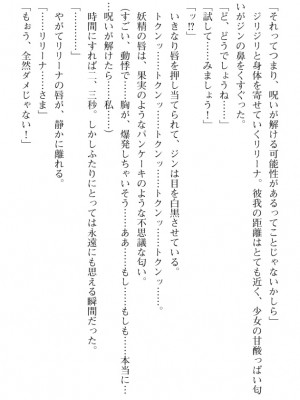 「それってつまり、呪いが解ける可能性があるってことじゃないかしら」
ジリジリと身体を寄せていくリリーナ。彼我の距離はとても近く、少女の甘酸っぱい匂
いがジンの鼻をくすぐった。
「ど、どうでしょうね……」
「試して……みましょう！」
「ッ!?」
いきなり唇を押し当てられて、ジンは目を白黒させている。
トクンッ……トクンッ……トクンッ……。
妖精の唇は、果実のようなパンケーキのような不思議な匂い。
（すごい、動悸で……胸が、爆発しちゃいそう……ああ……もし……もしも……本当に…
…呪いが解けたら……私……）
時間にすれば二、三秒。しかしふたりにとっては永遠にも思える瞬間だった。
「………」
やがてリリーナの唇が、静かに離れる。
「……リリーナ……さま」
「もぉう、全然ダメじゃない！」